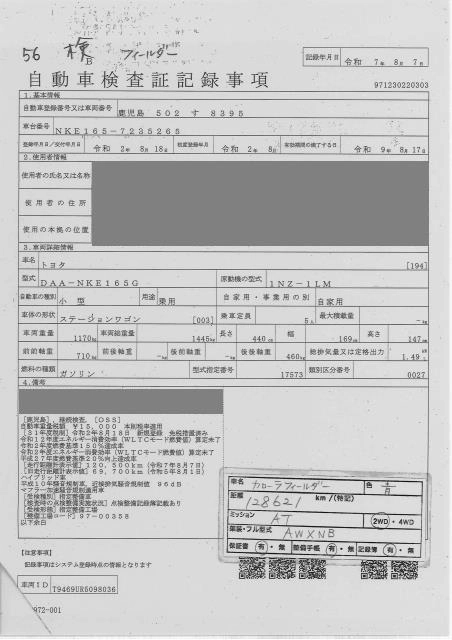 56 検B フィールダー
記録年月日 令和 7年 8月 7日
自動車検査証記録事項
971230220303
1.基本情報
自動車登録番号又は車両番号 鹿児島 502 す 8395
車台番号 NKE165-7235265
登録年月日/交付年月日 令和 2年 8月 18日 初度登録年月 令和 2年 8月 有効期間の満了する日 令和 9年 8月 17日
2.使用者情報
使用者の氏名又は名称
使用者の住所
使用の本拠の位置
3.車両詳細情報
車名 トヨタ [194]
型式 DAA-NKE165G 原動機の型式 1NZ-1LM
自動車の種別 小型 用途 乗用 自家用・事業用の別 自家用
車体の形状 ステーションワゴン [003] 乗車定員 5人 最大積載量 -kg
車両重量 1170kg 車両総重量 1445kg 長さ 440cm 幅 169cm 高さ 147cm
前前軸重 710kg 前後軸重 -kg 後前軸重 -kg 後後軸重 460kg 総排気量又は定格出力 1.49
燃料の種類 ガソリン 型式指定番号 17573 類別区分番号 0027
4.備考
[鹿児島],継続検査,[OSS]
自動車重量税額 ¥15,000 本則税率適用
[31年度税制]令和2年8月18日 新規登録 免税措置済み
令和12年度エネルギー消費効率(WLTCモード燃費値)算定未了
令和2年度燃費基準150%達成車
令和2年度エネルギー消費効率(WLTCモード燃費値)算定未了
平成27年度燃費基準20%向上達成車
[走行距離計表示値]120,500km(令和7年8月7日)
[旧走行距離計表示値]69,700km(令和5年8月1日)
ハイブリッド車
平成10年騒音規制車、近接排気騒音規制値 96dB
マフラー加速騒音規制適用車
[受検種別]指定整備車
[検査時の点検整備実施状況]点検整備記録簿記載あり
[受検形態]指定整備工場
[整備工場コード]97-00358
以下余白
車名 カローラフィールダー 色
距離 128621 km/(特記)
ミッション AT 2WD・4WD
架装・フル型式 AWXNB
保証書 有・無 整備手帳 有・無 記録簿 有・無
[注意事項]
記録事項はシステム登録時点の情報となります
車両ID T9469UR5098036
972-001